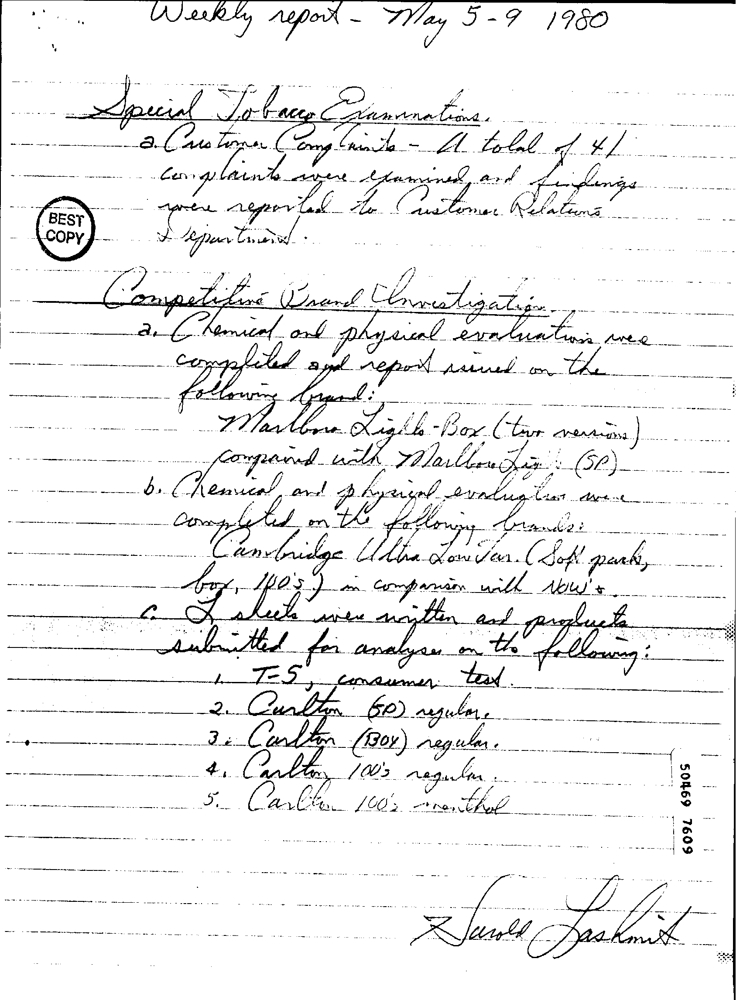 Weekly report - May 5-9 1980
Special Tobacco Examinations.
a. Customer Complaints - A total of 41
complaints were examined and findings
were reported to Customer Relations
Department.
BEST
COPY
Competitive Brand Investigation.
a. Chemical and physical evaluations were
completed and report issued on the
following brand:
Marlboro Lights-Box (two versions)
compared with Marlboro Lights (SP)
b. Chemical and physical evaluation were
completed on the following brands:
Cambridge Ultra Low Tar. (Soft pack,
box, 100's) in comparison with NOW's.
c. I sheets were written and products
submitted for analyses on the following:
1. T-5, consumer test.
2. Carlton (SP) regular.
3. Carlton (BOX) regular.
4. Carlton 100's regular.
5. Carlton 100's menthol
50469 7609
Harold Lashmit